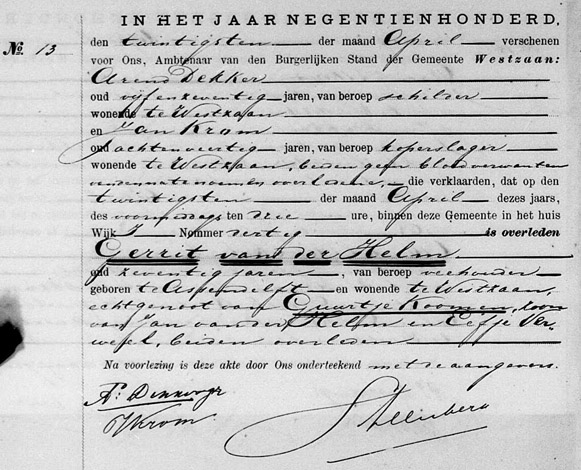 IN HET JAAR NEGENTIENHONDERD,
No. 13
den twintigsten der maand April verschenen
voor Ons, Ambtenaar van den Burgerlijken Stand der Gemeente Westzaan:
Arend Dekker
oud vijfenzeventig jaren, van beroep schilder
wonende te Westzaan
en Jan Krom
oud achtenveertig jaren, van beroep koperslager
wonende te Westzaan, beiden geen bloedverwanten
van den natenoemen overledene, die verklaarden, dat op den
twintigsten der maand April dezes jaars,
des voormiddags ten drie ure, binnen deze Gemeente in het huis
Wijk 1 Nommer dertig is overleden
Gerrit van der Helm
oud zeventig jaren, van beroep veehouder
geboren te Assendelft en wonende te Westzaan,
echtgenoot van Guurtje Koomen, zoon
van Jan van der Helm en Eefje Ver-
wesel, beiden overleden
Na voorlezing is deze akte door Ons onderteekend met de aangevers.
J Krom